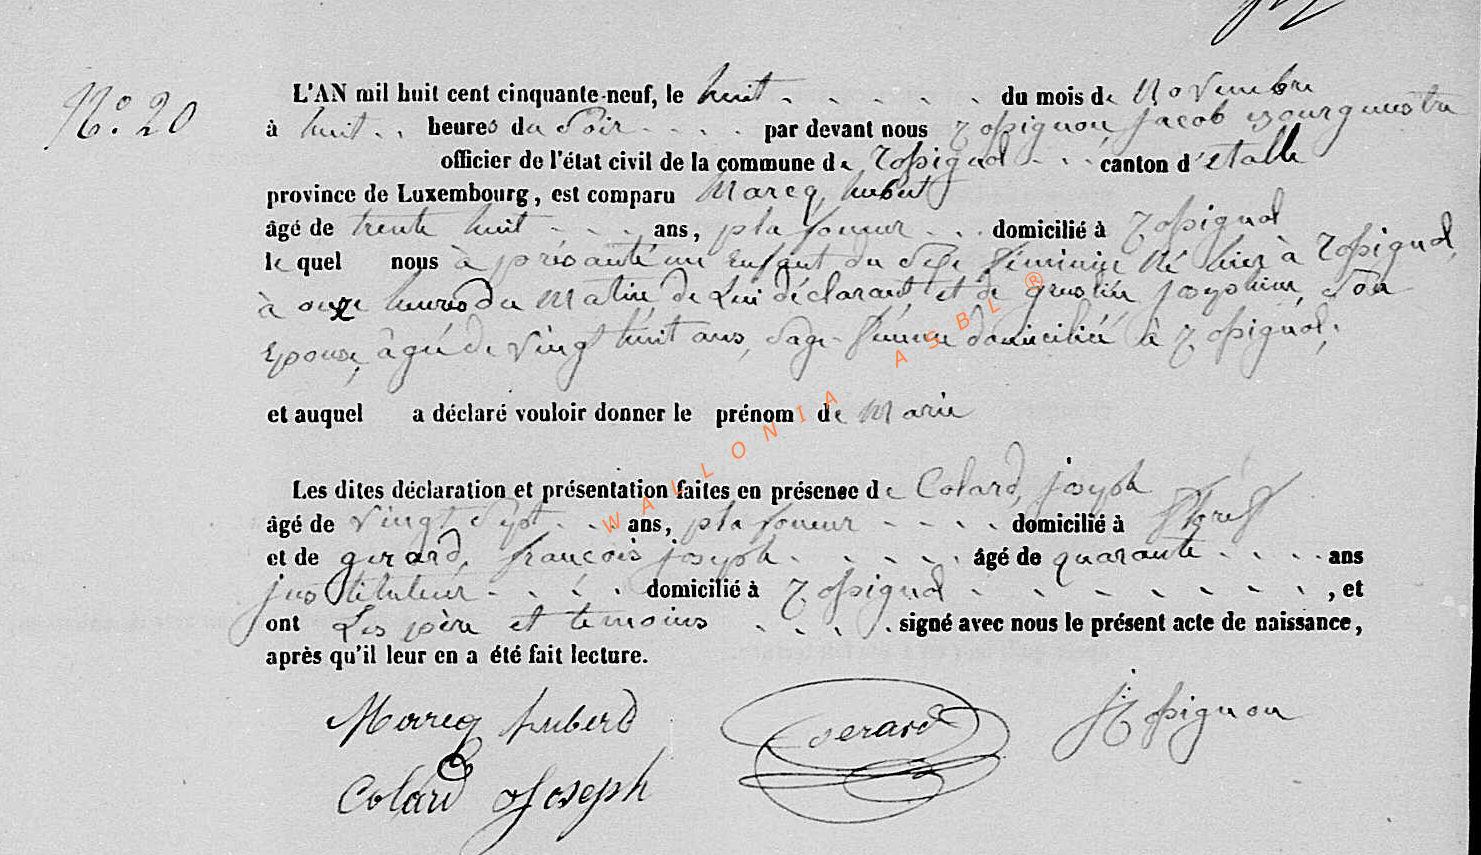 N.o 20
L'AN mil huit cent cinquante-neuf, le huit du mois de Novembre
à huit heures du Soir par devant nous Rossignon, Jacob Bourgmestre
officier de l'état civil de la commune de Rossignol canton d'Etalle
province de Luxembourg, est comparu Marcq, hubert
âgé de trente huit ans, plafoneur domicilié à Rossignol
lequel nous à présanté un Enfant du Sexe féminin Né hier à Rossignol,
à onze heures du Matin de Lui déclarant, et de Joséphine, Son
Epouse, âgée de Vingt huit ans, Sage-femme domiciliée à Rossignol,
et auquel a déclaré vouloir donner le prénom de Marie
Les dites déclaration et présentation faites en présence de Colard, joseph
âgé de Vingt Sept ans, plafoneur domicilié à
et de gerard, françois joseph âgé de quarante ans
justituteur domicilié à Rossignol , et
ont Les père et temoins signé avec nous le présent acte de naissance,
après qu'il leur en a été fait lecture.
Marcq huberd
Gerard
J Rossignon
Colard Joseph
WALLONIA ASBL ®